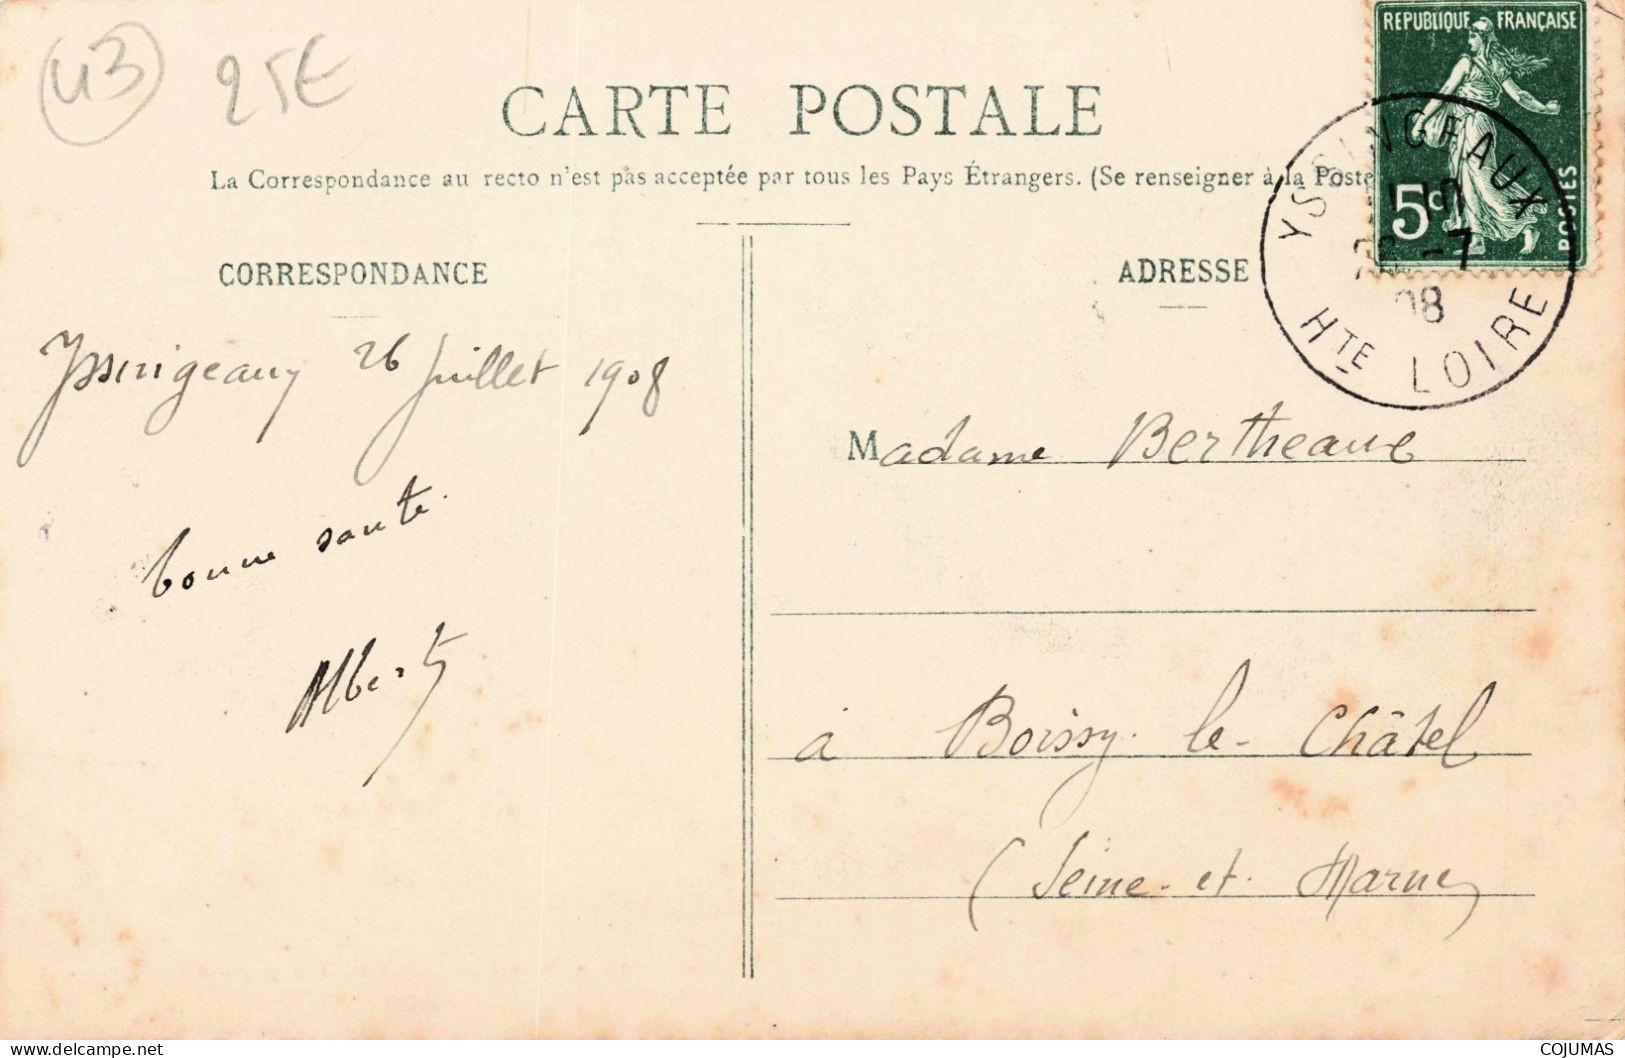 43
25€
CARTE POSTALE
La Correspondance au recto n'est pas acceptée par tous les Pays Étrangers. (Se renseigner à la Poste
REPUBLIQUE FRANÇAISE
5c
POSTES
YSSINGEAUX
-7
08
HTE LOIRE
CORRESPONDANCE
Yssingeaux 26 Juillet 1908
bonne santé
Albert
ADRESSE
Madame Bertheaux
à Boissy-le-Châtel
(Seine-et-Marne)
www.delcampe.net
COJUMAS